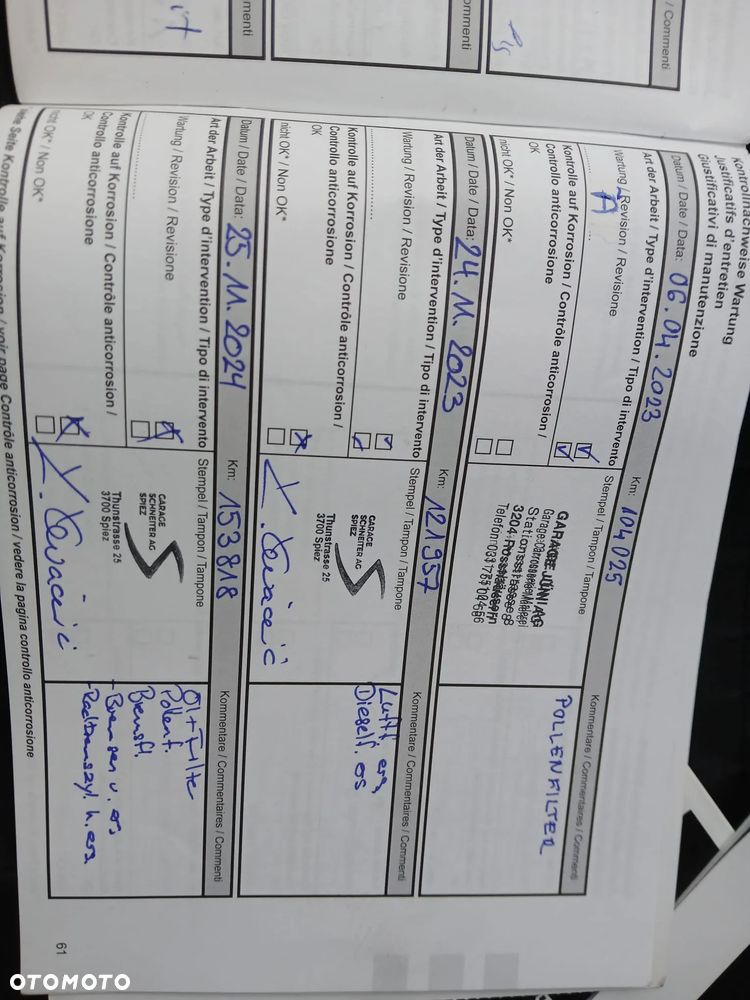 / Commenti
ommenti
menti
Kontrollnachweise Wartung
Justificatifs d'entretien
Giustificativi di manutenzione
Datum / Date / Data: 06.04.2023
Km: 104025
Kommentare / Commentaires / Commenti
Art der Arbeit / Type d'intervention / Tipo di intervento
Stempel / Tampon / Tampone
Wartung / Revision / Revisione
A
Kontrolle auf Korrosion / Contrôle anticorrosion /
Controllo anticorrosione
OK
nicht OK* / Non OK*
GARAGE JÖNI AG
POLLENFILTER
Datum / Date / Data: 24.11.2023
Km: 121957
Kommentare / Commentaires / Commenti
Art der Arbeit / Type d'intervention / Tipo di intervento
Stempel / Tampon / Tampone
Wartung / Revision / Revisione
Kontrolle auf Korrosion / Contrôle anticorrosion /
Controllo anticorrosione
OK
nicht OK* / Non OK*
GARAGE
SCHNEITER AG
SPIEZ
Thunstrasse 25
3700 Spiez
Luftf. ers,
Dieself. ers
Datum / Date / Data: 25.11.2024
Km: 153818
Kommentare / Commentaires / Commenti
Art der Arbeit / Type d'intervention / Tipo di intervento
Stempel / Tampon / Tampone
Wartung / Revision / Revisione
Kontrolle auf Korrosion / Contrôle anticorrosion /
Controllo anticorrosione
OK
nicht OK* / Non OK*
GARAGE
SCHNEITER AG
SPIEZ
Thunstrasse 25
3700 Spiez
Öl + Filter
Pollenf.
Bremsfl.
- Bremsen v. ers
- Radbremszyl. h. ers.
siehe Seite Kontrolle auf Korrosion / voir page Contrôle anticorrosion / vedere la pagina controllo anticorrosione
61
OTOMOTO